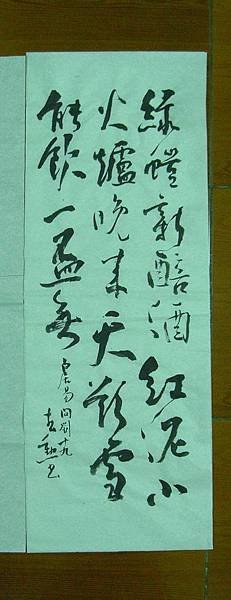 綠螘新醅酒紅泥小
火爐晚來天欲雪
能飲一盃無
居易問劉十九